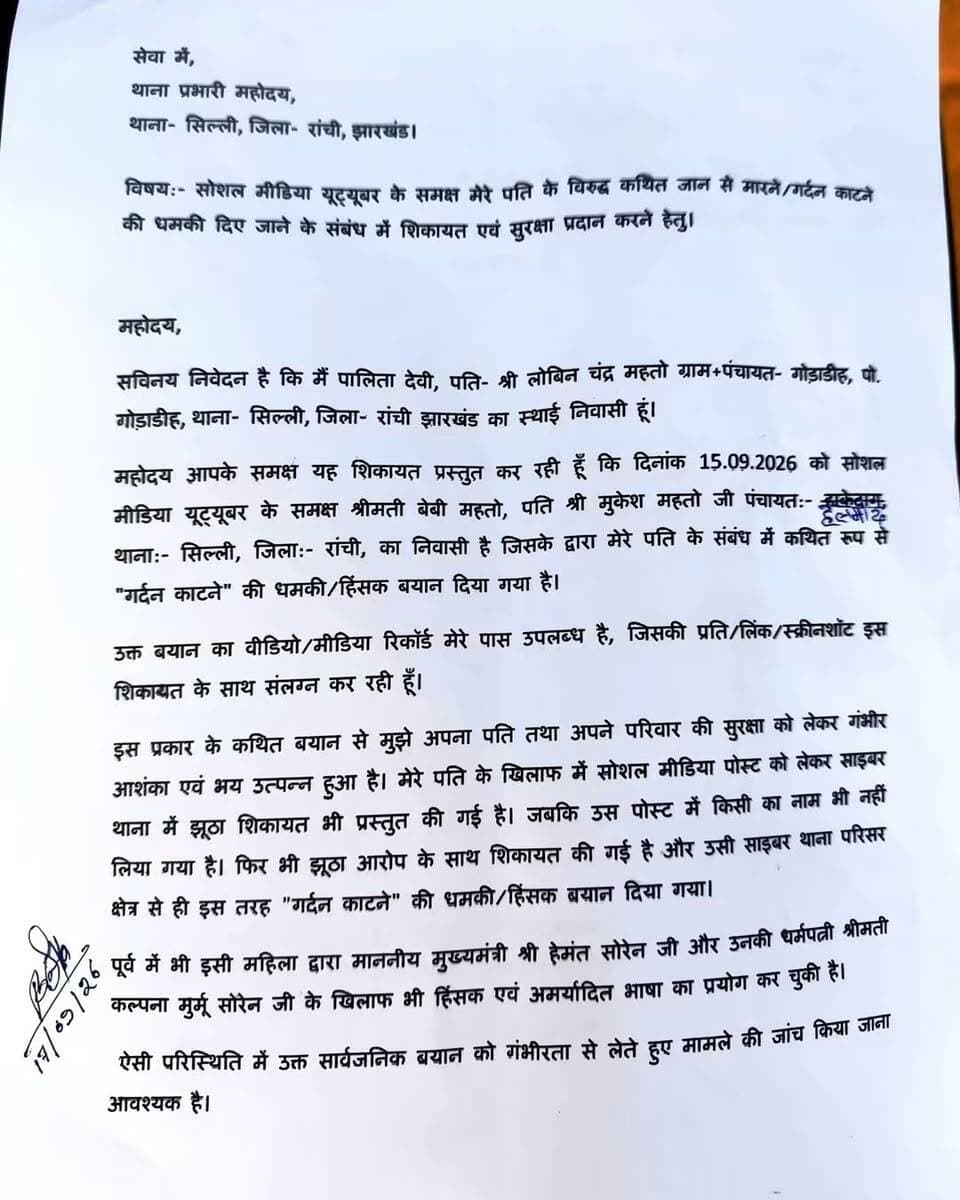 सेवा में,
थाना प्रभारी महोदय,
थाना- सिल्ली, जिला- रांची, झारखंड।
विषय:- सोशल मीडिया यूट्यूबर के समक्ष मेरे पति के विरुद्ध कथित जान से मारने/गर्दन काटने
की धमकी दिए जाने के संबंध में शिकायत एवं सुरक्षा प्रदान करने हेतु।
महोदय,
सविनय निवेदन है कि मैं पालिता देवी, पति- श्री लोबिन चंद्र महतो ग्राम+पंचायत- गोड़ाडीह, पो.
गोड़ाडीह, थाना- सिल्ली, जिला- रांची झारखंड का स्थाई निवासी हूं।
महोदय आपके समक्ष यह शिकायत प्रस्तुत कर रही हूँ कि दिनांक 15.09.2026 को सोशल
मीडिया यूट्यूबर के समक्ष श्रीमती बेबी महतो, पति श्री मुकेश महतो जी पंचायत:-
थाना:- सिल्ली, जिला:- रांची, का निवासी है जिसके द्वारा मेरे पति के संबंध में कथित रूप से
"गर्दन काटने" की धमकी/हिंसक बयान दिया गया है।
उक्त बयान का वीडियो/मीडिया रिकॉर्ड मेरे पास उपलब्ध है, जिसकी प्रति/लिंक/स्क्रीनशॉट इस
शिकायत के साथ संलग्न कर रही हूँ।
इस प्रकार के कथित बयान से मुझे अपना पति तथा अपने परिवार की सुरक्षा को लेकर गंभीर
आशंका एवं भय उत्पन्न हुआ है। मेरे पति के खिलाफ में सोशल मीडिया पोस्ट को लेकर साइबर
थाना में झूठा शिकायत भी प्रस्तुत की गई है। जबकि उस पोस्ट में किसी का नाम भी नहीं
लिया गया है। फिर भी झूठा आरोप के साथ शिकायत की गई है और उसी साइबर थाना परिसर
क्षेत्र से ही इस तरह "गर्दन काटने" की धमकी/हिंसक बयान दिया गया।
पूर्व में भी इसी महिला द्वारा माननीय मुख्यमंत्री श्री हेमंत सोरेन जी और उनकी धर्मपत्नी श्रीमती
कल्पना मुर्मू सोरेन जी के खिलाफ भी हिंसक एवं अमर्यादित भाषा का प्रयोग कर चुकी है।
ऐसी परिस्थिति में उक्त सार्वजनिक बयान को गंभीरता से लेते हुए मामले की जांच किया जाना
आवश्यक है।
17/09/26